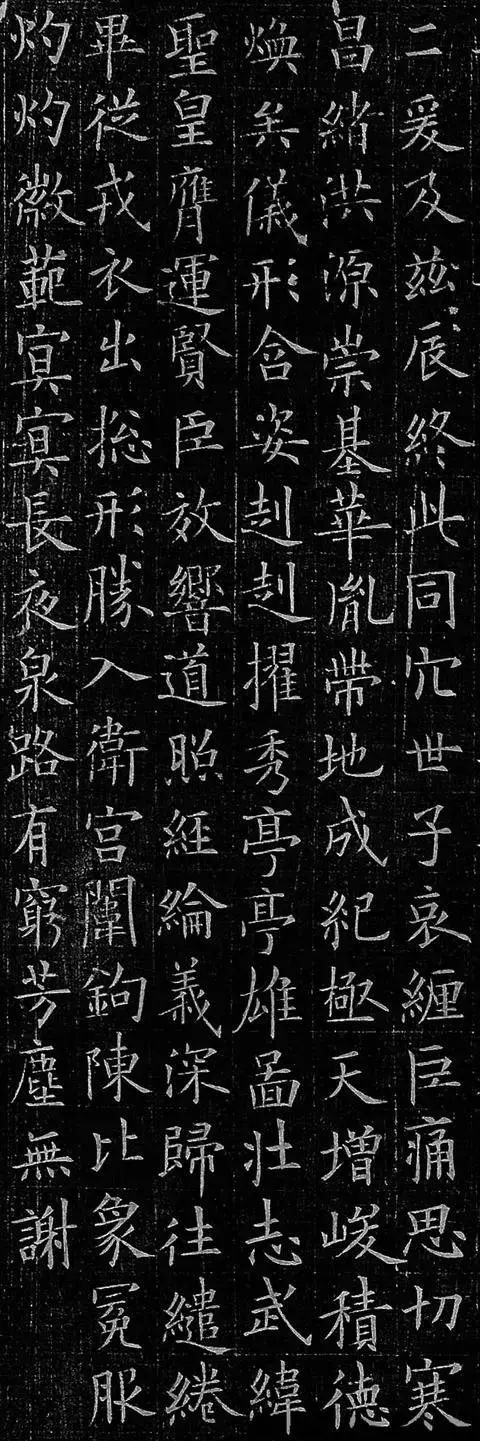 二爰及兹辰終此同穴世子哀纏巨痛思切寒
昌緒洪源崇基華胤帶地成紀極天增峻積德
煥矣儀形含姿赳赳擢秀亭亭雄啚壯志武緯
聖皇膺運賢臣放響道照經綸義深歸往繾綣
畢從戎衣出揔形勝入衛宮闈鉤陳比象冕服
灼灼徽範冥冥長夜泉路有窮芳塵無謝